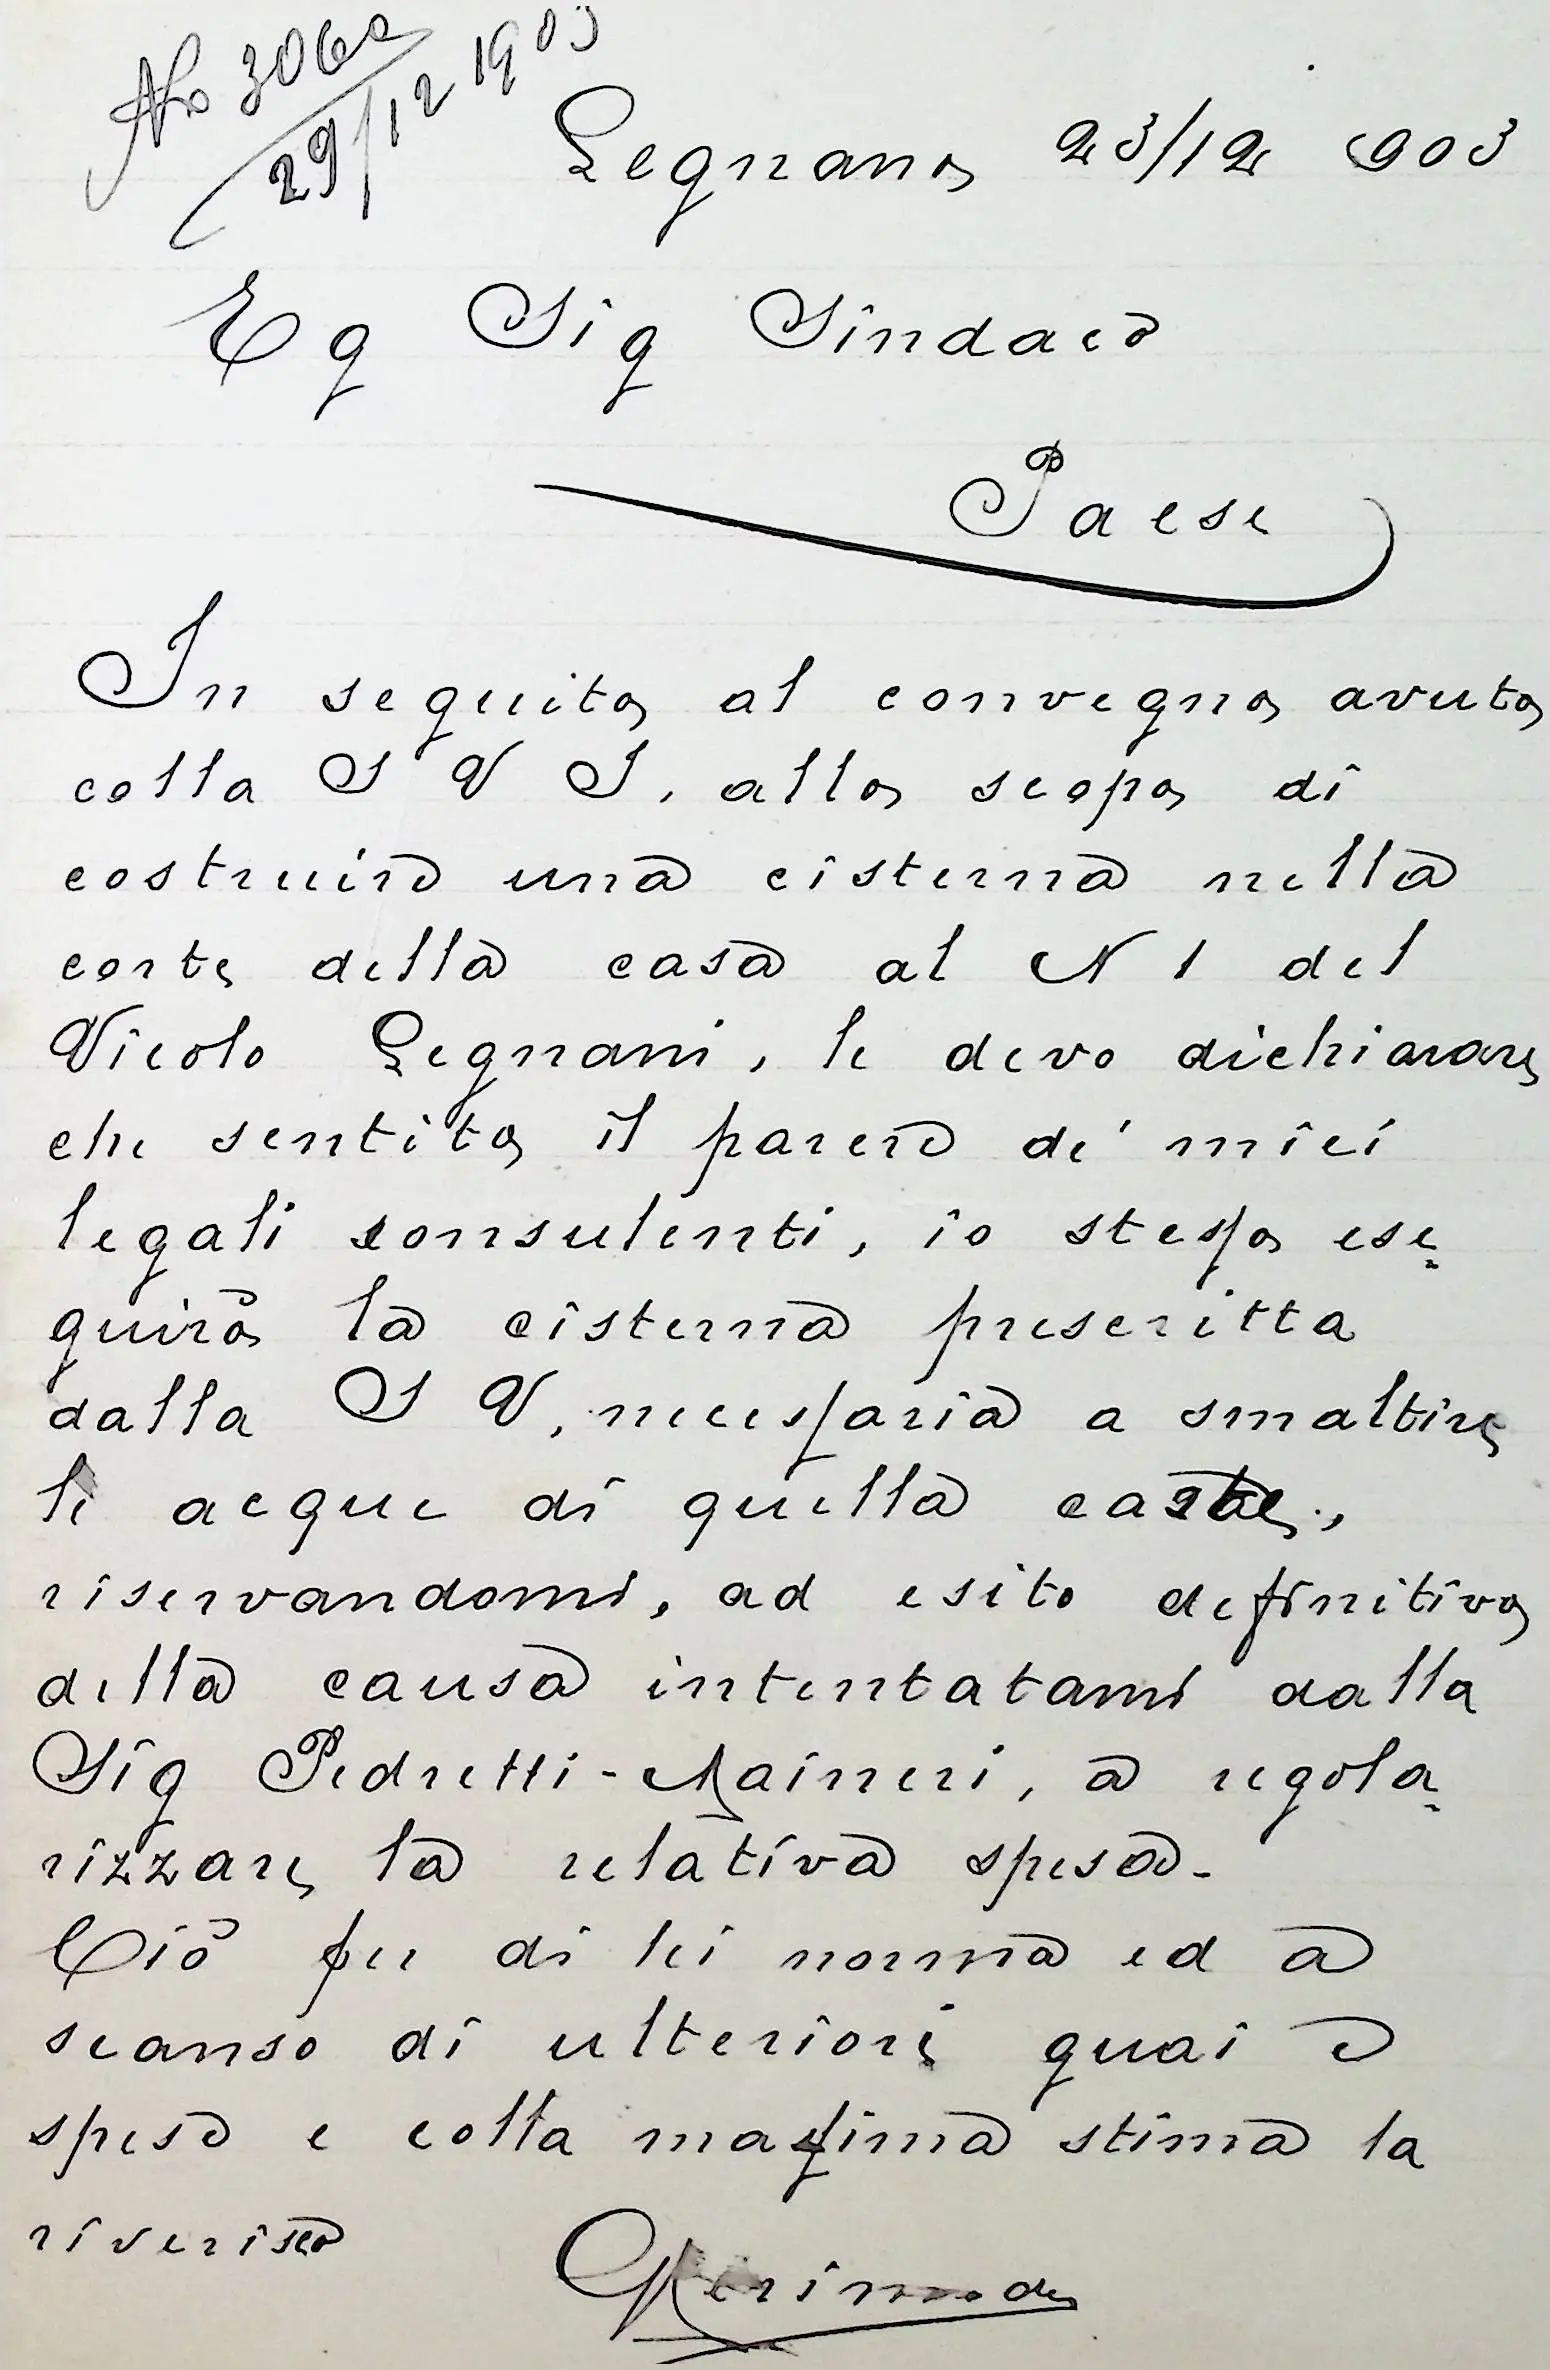 No 3060
29/12 1903
Legnano 23/12 903
Eg Sig Sindaco
Paese
In seguito al convegno avuto
colla S V I, allo scopo di
costruire una cisterna nella
corte della casa al N 1 del
Vicolo Legnani, le devo dichiarare
che sentito il parere de' miei
legali consulenti, io stesso ese=
guirò la cisterna prescritta
dalla S V, necessaria a smaltire
le acque di quella
riservandomi, ad esito definitivo
della causa intentatami dalla
Sig Pedretti-Maineri, a regola=
rizzare la relativa spesa-
Ciò per di lei norma ed a
scanso di ulteriori guai e
spese e colla massima stima la
riverisco